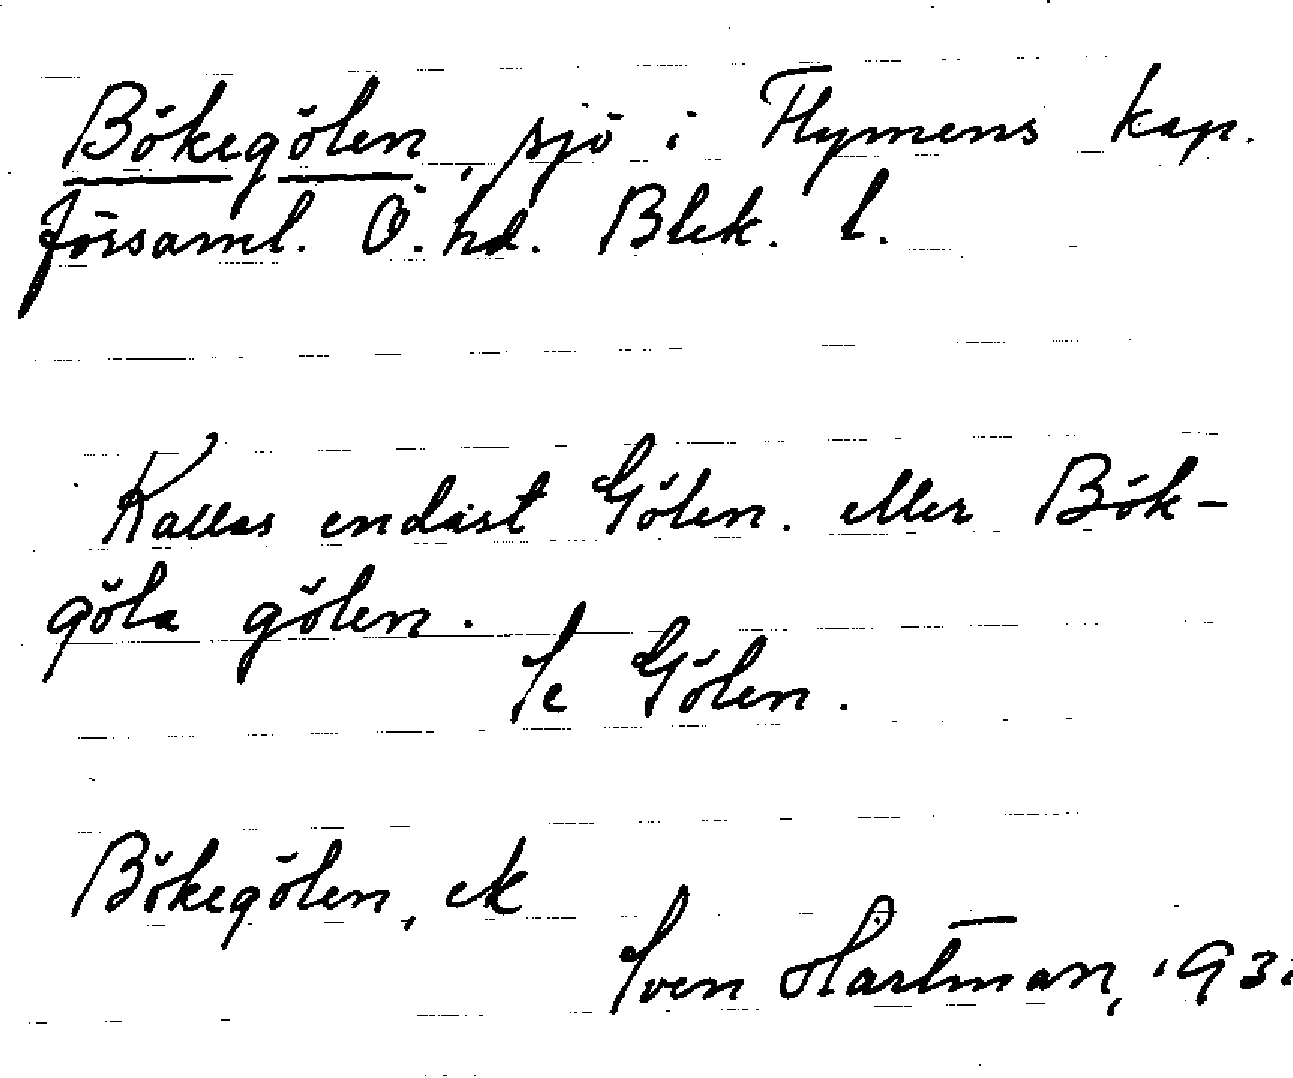 Bökegölen, sjö i Flymens kap.
församl. Ö. hd. Blek. l.
Kallas endast Gölen. eller Bök-
göla gölen.
Se Gölen.
Bökegölen, ek
Sven Hartman,